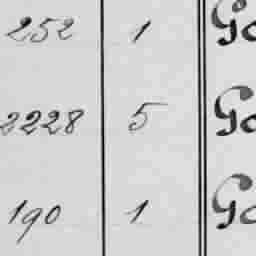 252 1 Go
2228 5 Go
190 1 Go